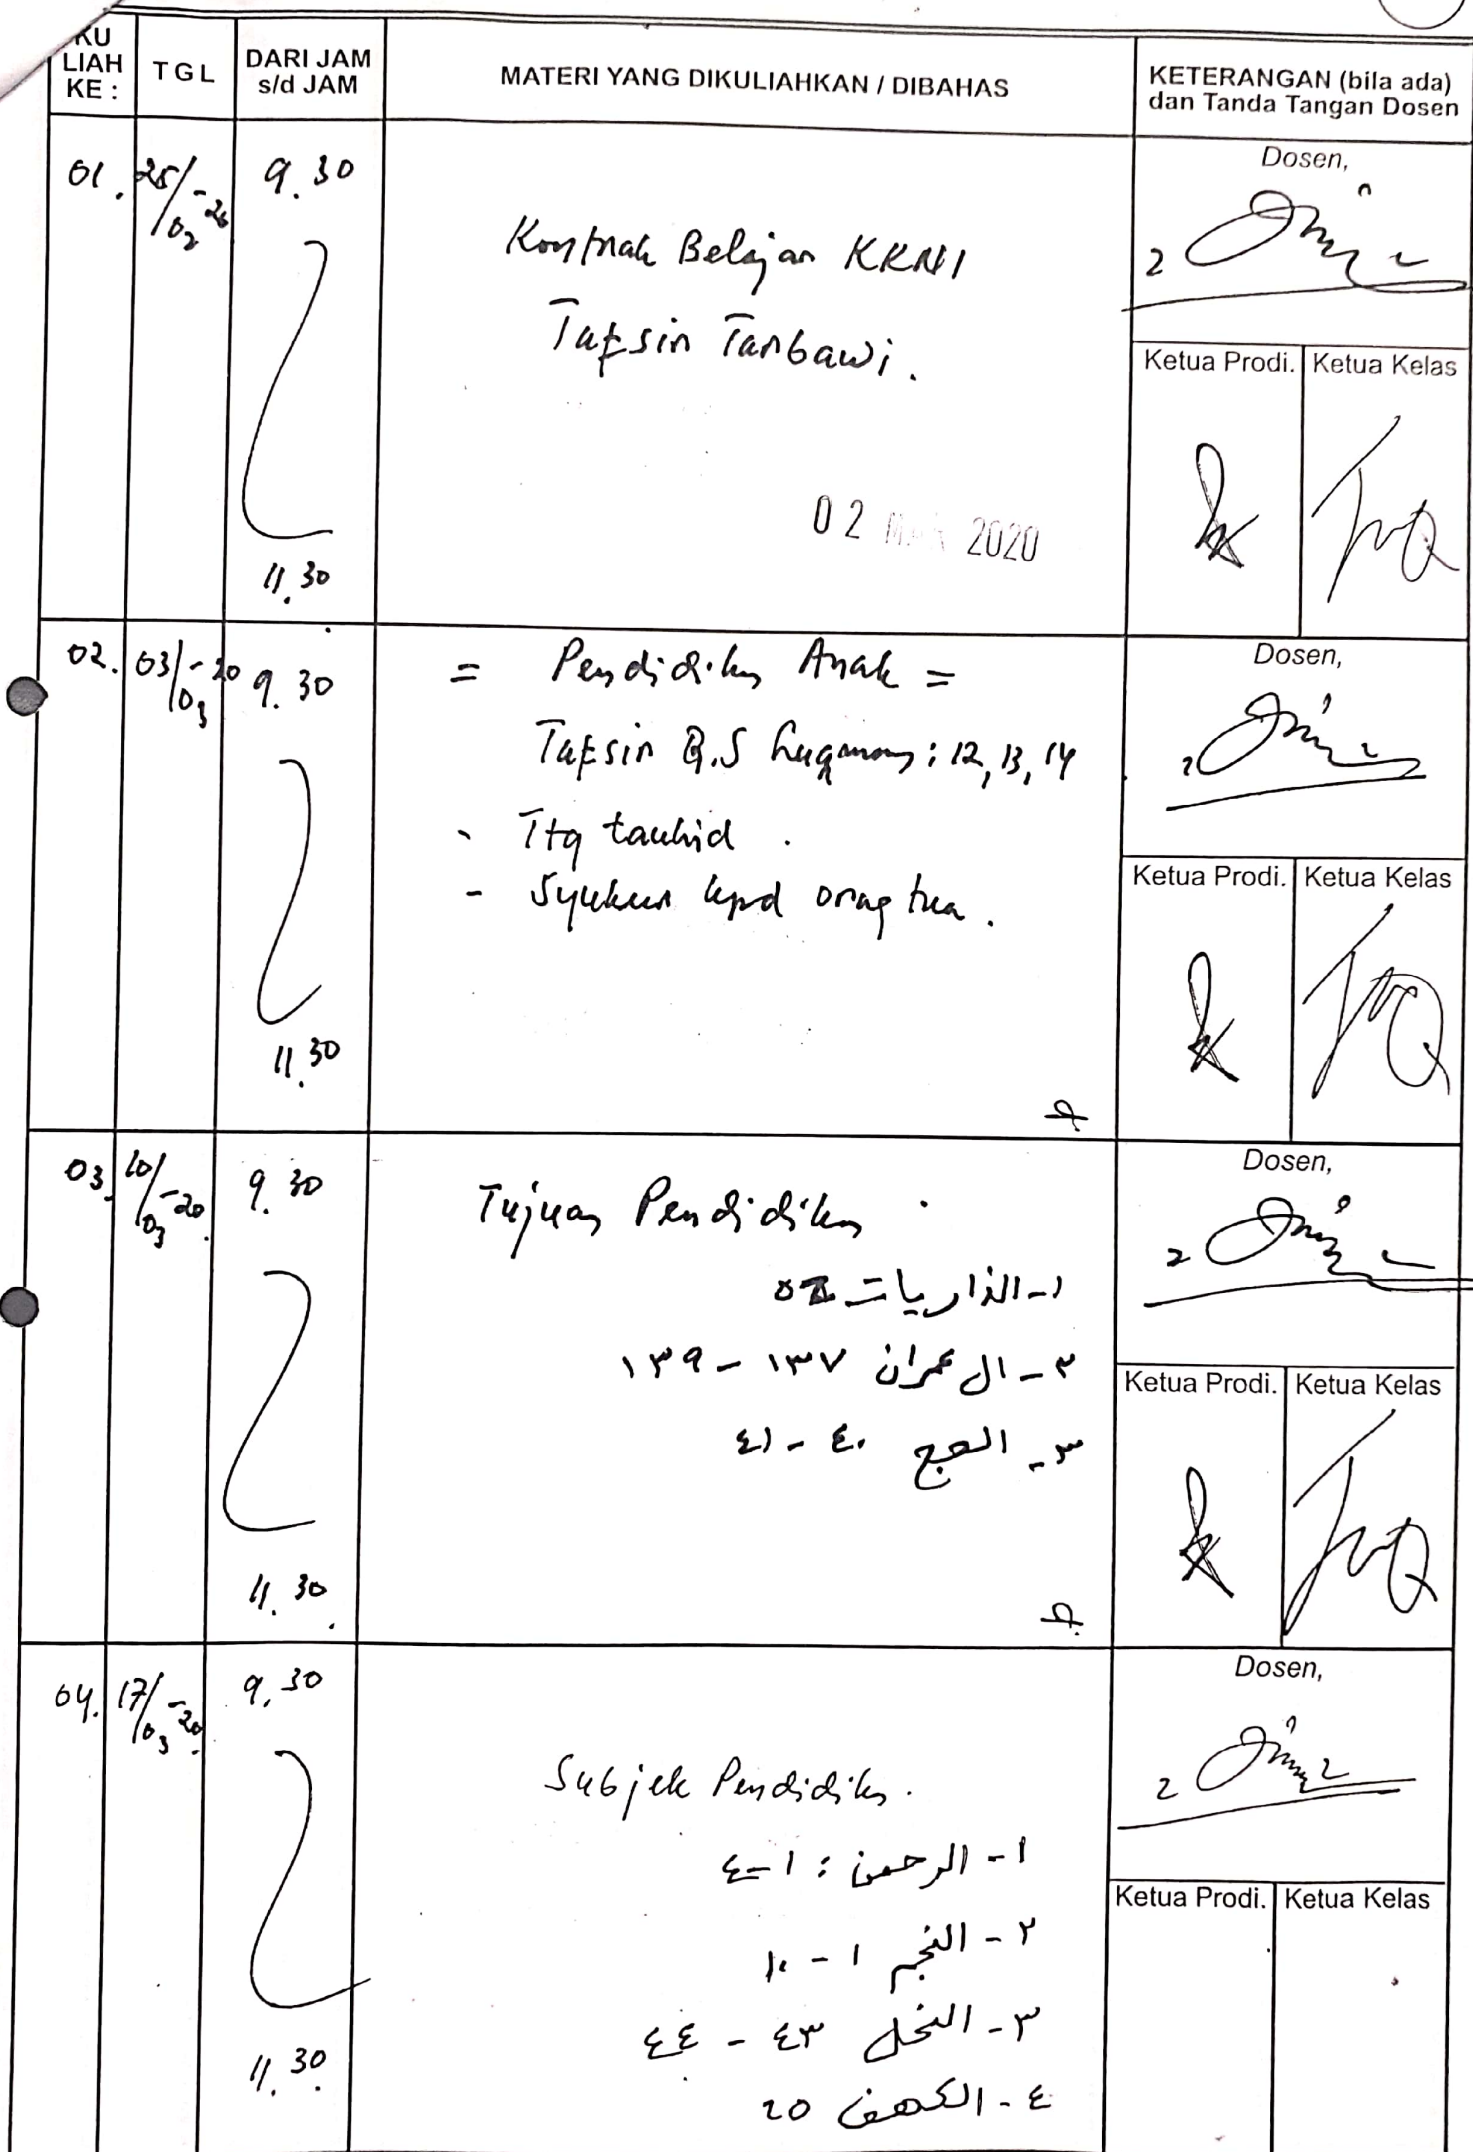 KU
LIAH
KE :
TGL
DARI JAM
s/d JAM
MATERI YANG DIKULIAHKAN / DIBAHAS
KETERANGAN (bila ada)
dan Tanda Tangan Dosen
01.
25/02-20
9.30
11.30
Kontrak Belajar KKNI
Tafsir Tarbawi.
02 2020
Dosen,
Ketua Prodi.
Ketua Kelas
02.
03/03-20
9.30
11.30
= Pendidikan Anak =
Tafsir Q.S Luqman: 12, 13, 14
- Ttg tauhid.
- Syukur kpd orang tua.
Dosen,
Ketua Prodi.
Ketua Kelas
03.
10/03-20.
9.30
11.30.
Tujuan Pendidikan
١- الذاريات
٢- ال عمران ١٣٧ - ١٣٩
٣- الحج ٤٠ - ٤١
Dosen,
Ketua Prodi.
Ketua Kelas
04.
17/03-20.
9.30
11.30.
Subjek Pendidikan.
١- الرحمن : ١-٤
٢- النجم ١ - ١٠
٣- النحل ٤٣ - ٤٤
٤- الكهف
Dosen,
Ketua Prodi.
Ketua Kelas